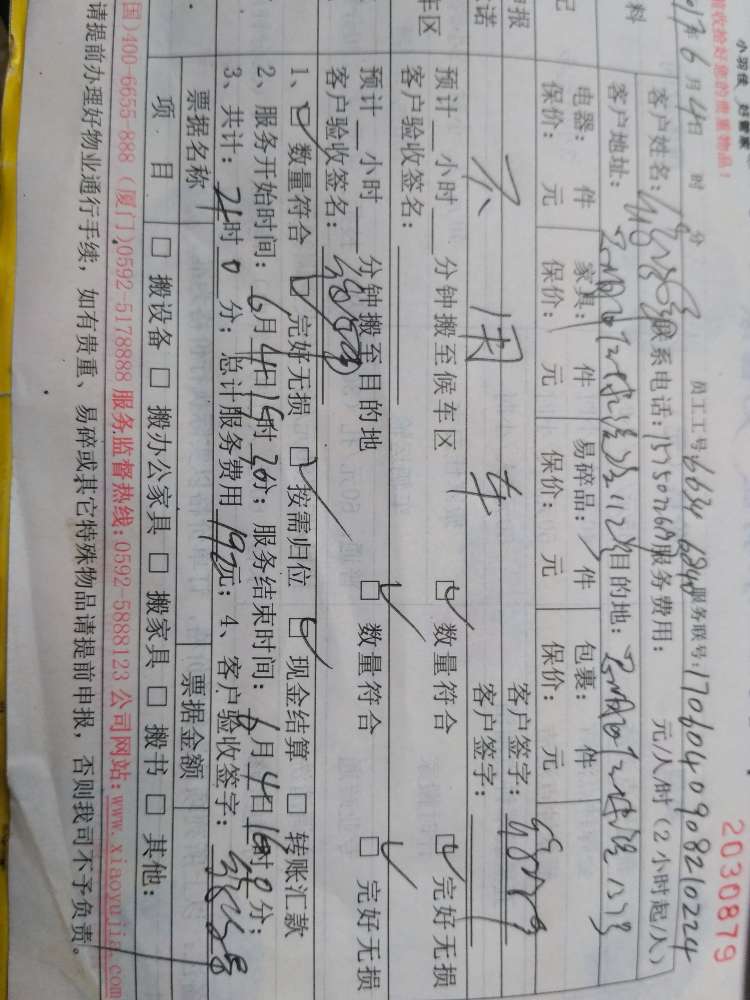 小羽佳 好管家
2030879
前收拾好您的贵重物品！
017年6月4日 时 分 员工工号: 6634 6840 服务联号: 1706040908210224
客户姓名: 联系电话: 服务费用: 元/人/时(2小时起/人)
料
客户地址: 目的地:
记
电器: 件 家具: 件 易碎品: 件 包裹: 件
保价: 元 保价: 元 保价: 元 保价: 元
客户签字:
申报
诺
不 用 车
客户签字:
车区
预计__小时__分钟搬至候车区 □ 数量符合 □ 完好无损
客户验收签名:
预计__小时__分钟搬至目的地 □ 数量符合 □ 完好无损
客户验收签名:
1、□ 数量符合 □ 完好无损 □ 按需归位 □ 现金结算 □ 转账汇款
2、服务开始时间: 6月4日15时20分; 服务结束时间: 6月4日 时0分;
3、共计: 时0分; 总计服务费用192元; 4、客户验收签字:
票据名称 票据金额
项 目 □ 搬设备 □ 搬办公家具 □ 搬家具 □ 搬书 □ 其他:
国)400-6655-888 (厦门)0592-5178888 服务监督热线:0592-5888123 公司网站:www.xiaoyujia.com
请提前办理好物业通行手续, 如有贵重、易碎或其它特殊物品请提前申报, 否则我司不予负责。